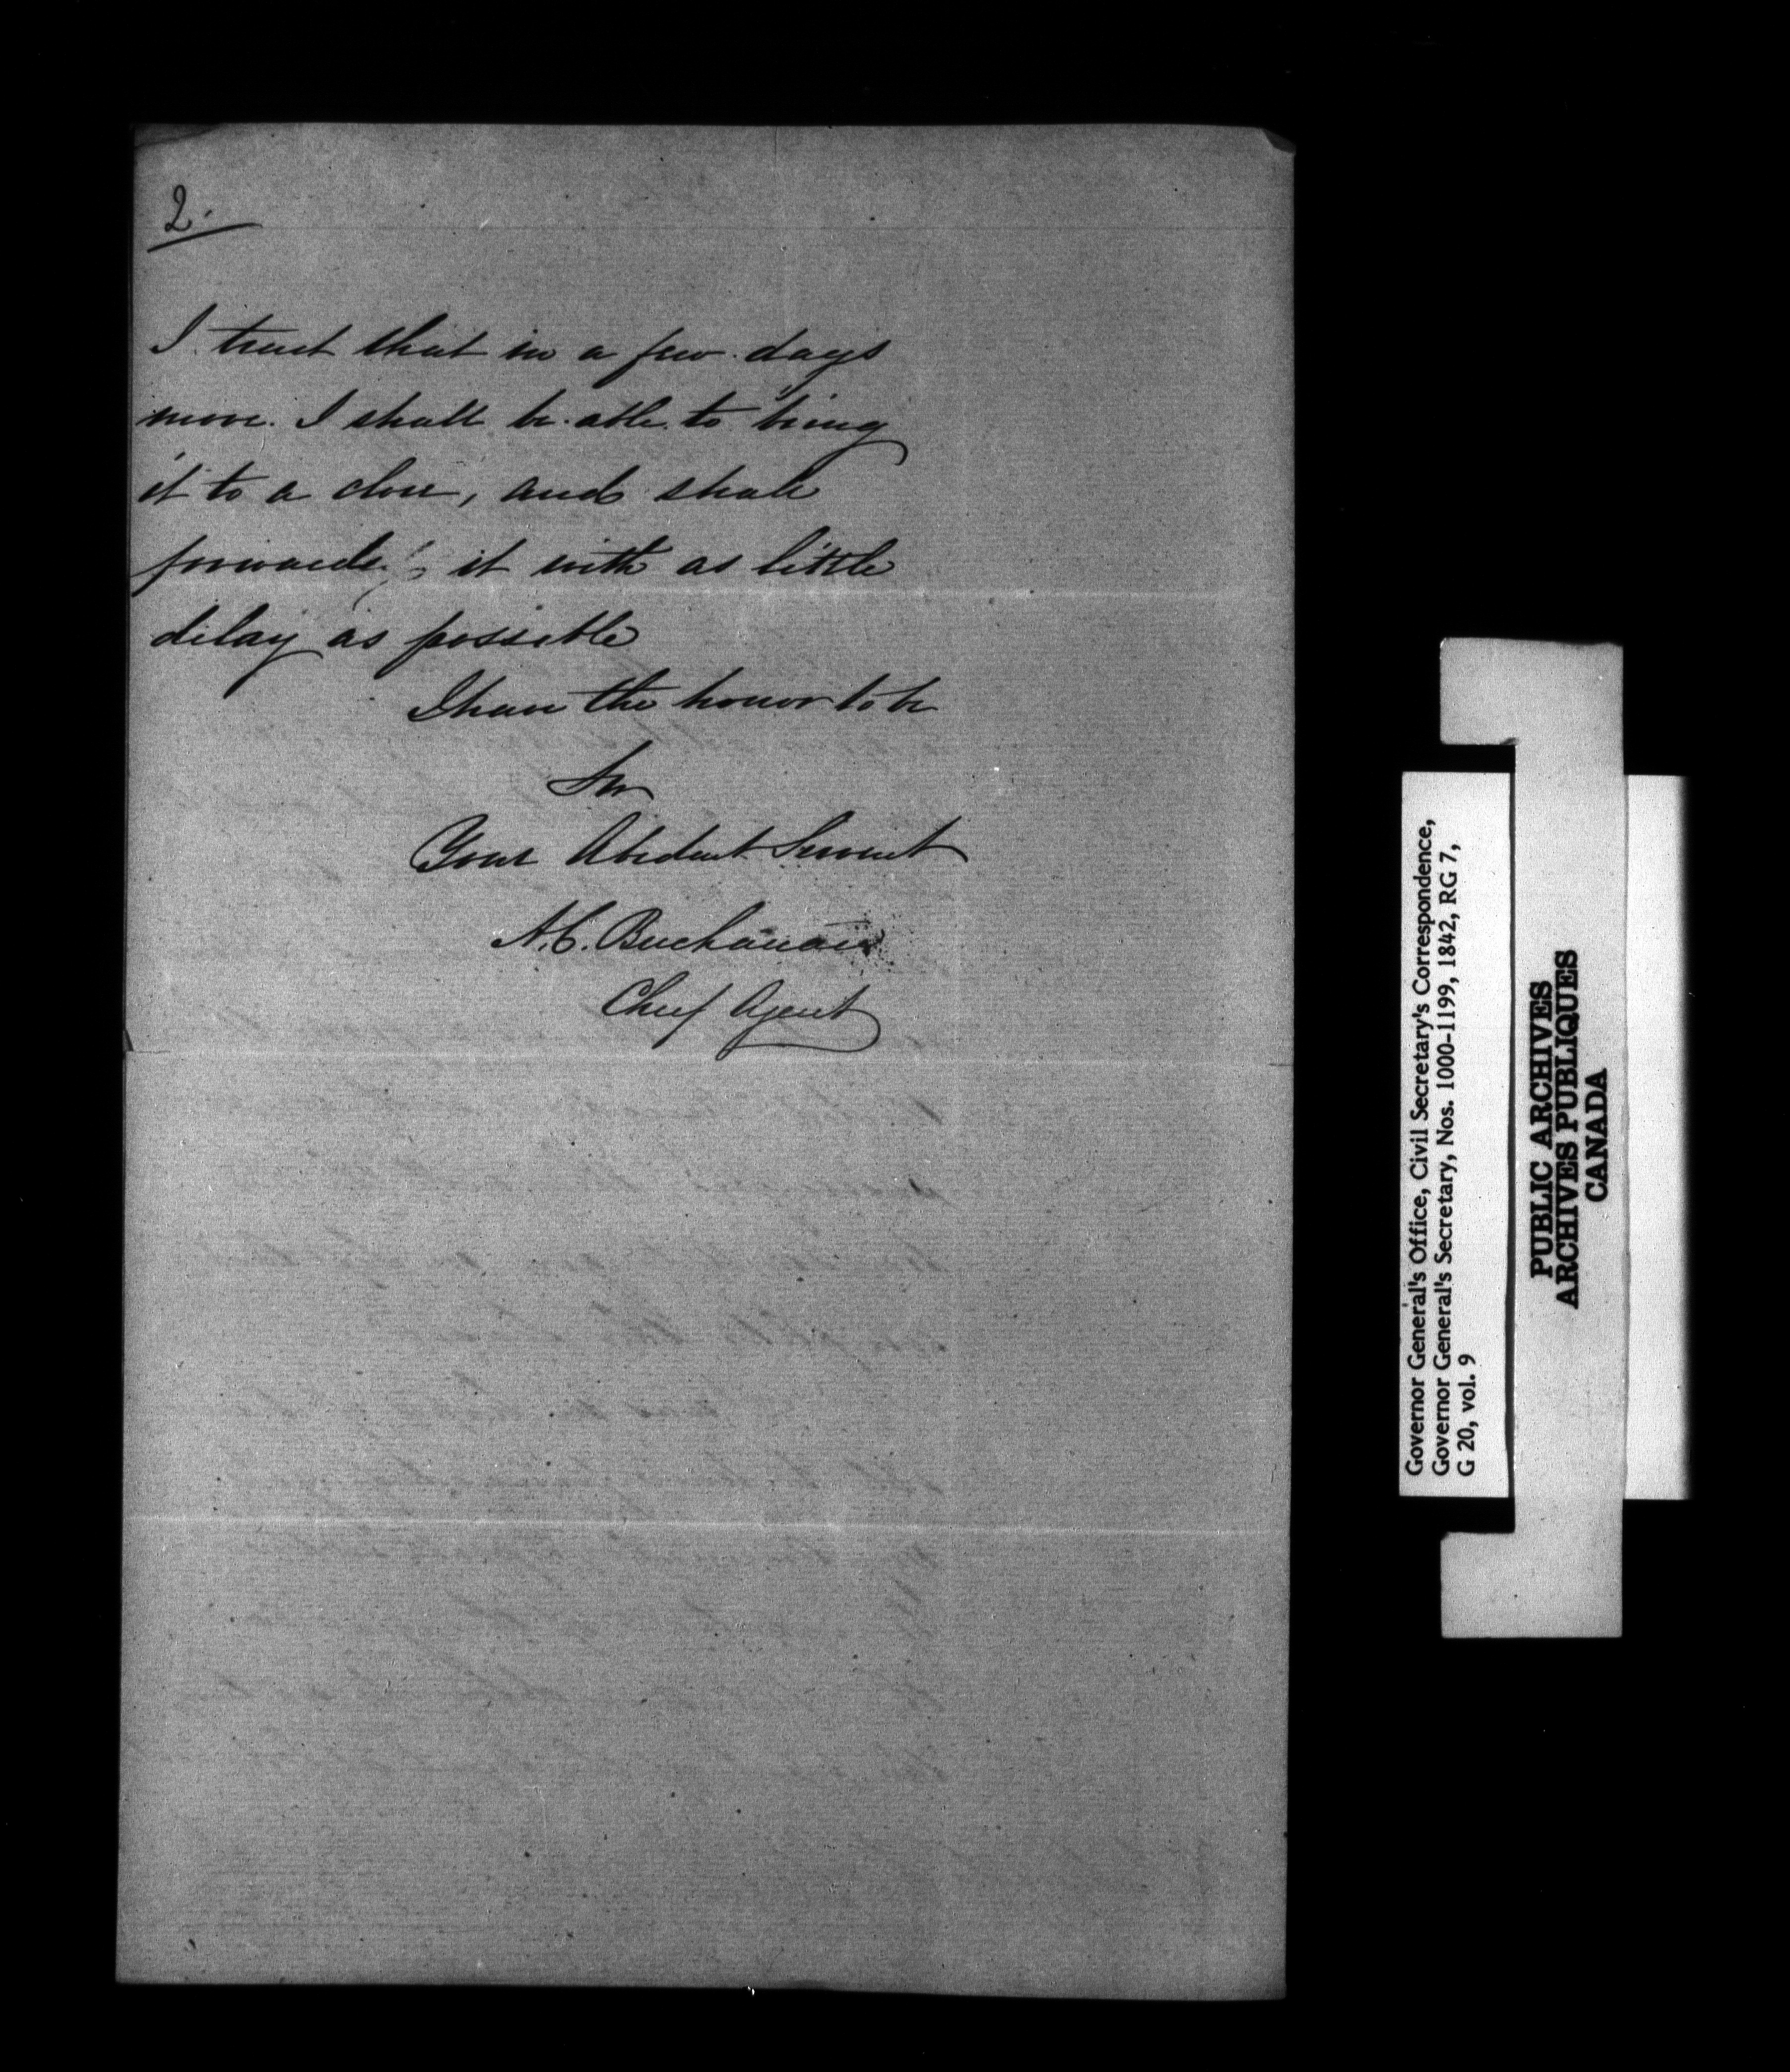 2.
I trust that in a few days
more I shall be able to bring
it to a close, and shall
forward it with as little
delay as possible
I have the honor to be
Sir
Your Obedient Servant
A.C. Buchanan
Chief Agent
Governor General's Office, Civil Secretary's Correspondence,
Governor General's Secretary, Nos. 1000-1199, 1842, RG 7,
G 20, vol. 9
PUBLIC ARCHIVES
ARCHIVES PUBLIQUES
CANADA